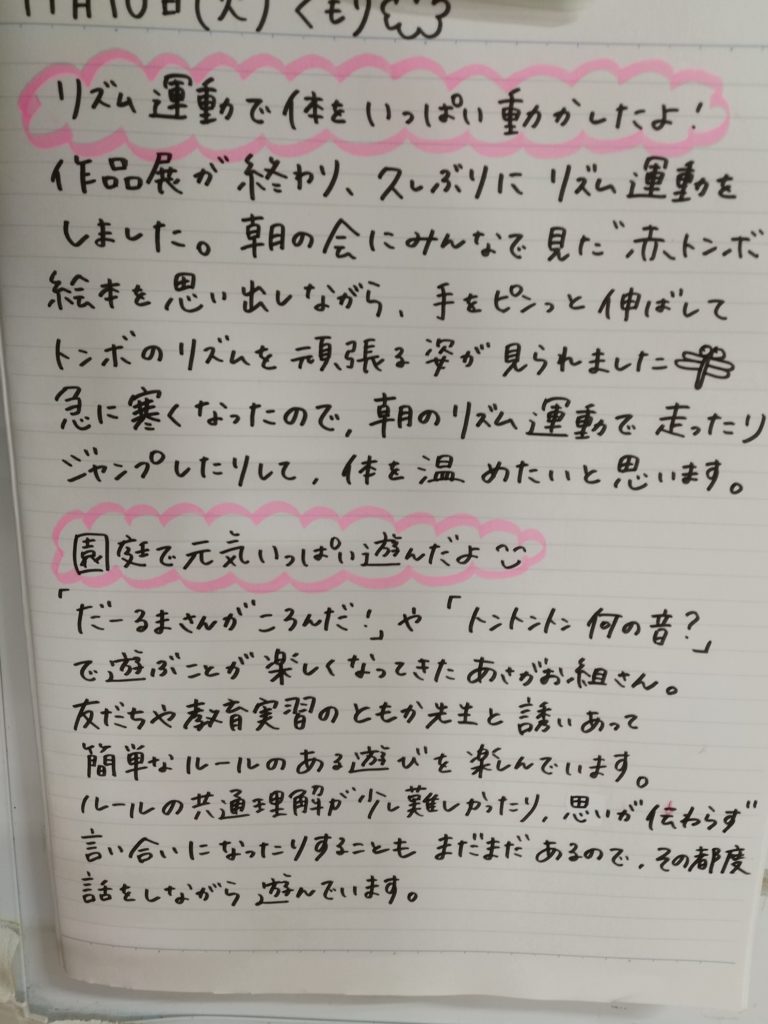 11月10日(火)くもり
リズム運動で体をいっぱい動かしたよ!
作品展が終わり、久しぶりにリズム運動を
しました。朝の会にみんなで見た"赤トンボ
絵本を思い出しながら、手をピンっと伸ばして
トンボのリズムを頑張る姿が見られました
急に寒くなったので、朝のリズム運動で走ったり
ジャンプしたりして、体を温めたいと思います。
園庭で元気いっぱい遊んだよ
「だーるまさんがころんだ!」や「トントントン何の音?」
で遊ぶことが楽しくなってきたあさがお組さん。
友だちや教育実習のともか先生と誘いあって
簡単なルールのある遊びを楽しんでいます。
ルールの共通理解が少し難しかったり、思いが伝わらず
言い合いになったりすることもまだまだあるので、その都度
話をしながら遊んでいます。